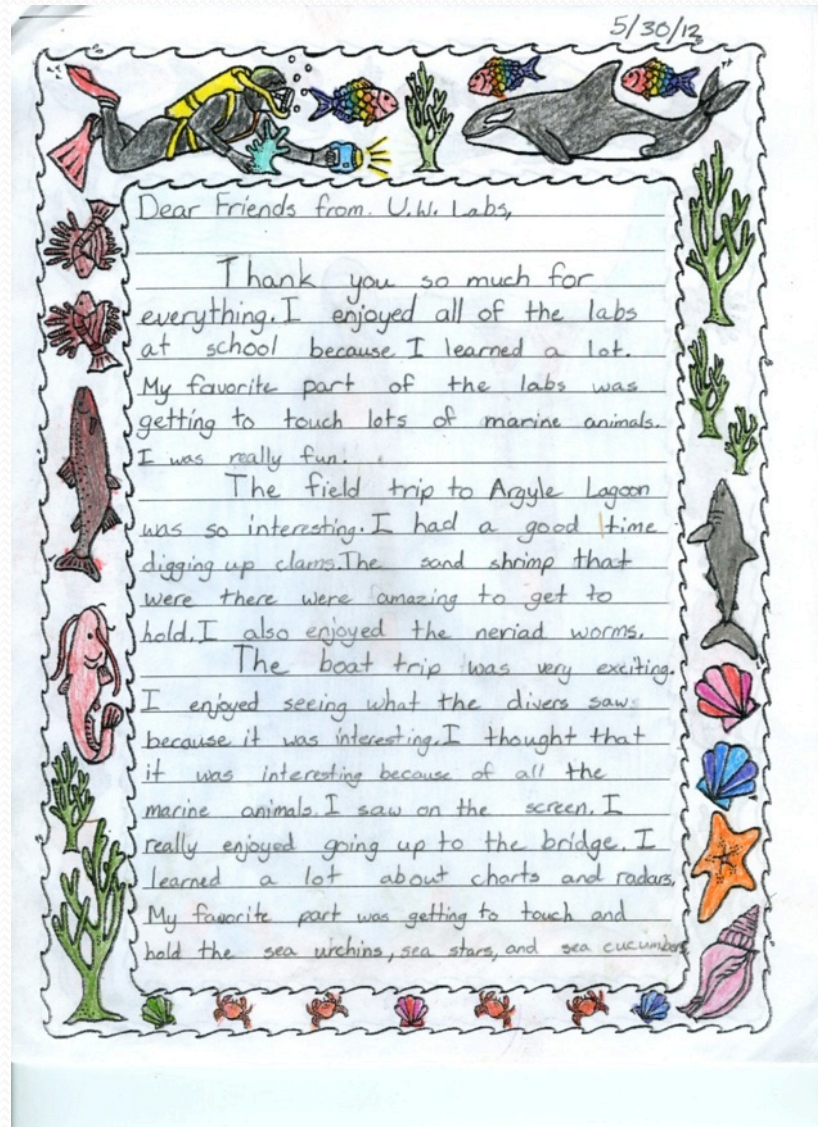 5/30/12
Dear Friends from U.W. Labs,
Thank you so much for
everything. I enjoyed all of the labs
at school because I learned a lot.
My favorite part of the labs was
getting to touch lots of marine animals.
I was really fun!
The field trip to Argyle Lagoon
was so interesting. I had a good time
digging up clams. The sand shrimp that
were there were amazing to get to
hold. I also enjoyed the neriad worms.
The boat trip was very exciting.
I enjoyed seeing what the divers saw
because it was interesting. I thought that
it was interesting because of all the
marine animals I saw on the screen. I
really enjoyed going up to the bridge. I
learned a lot about charts and radars.
My favorite part was getting to touch and
hold the sea urchins, sea stars, and sea cucumbers